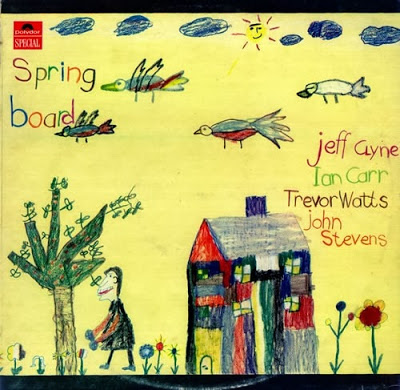 polydor
SPECIAL
Spring
board
jeff clyne
Ian Carr
Trevor Watts
john
Stevens